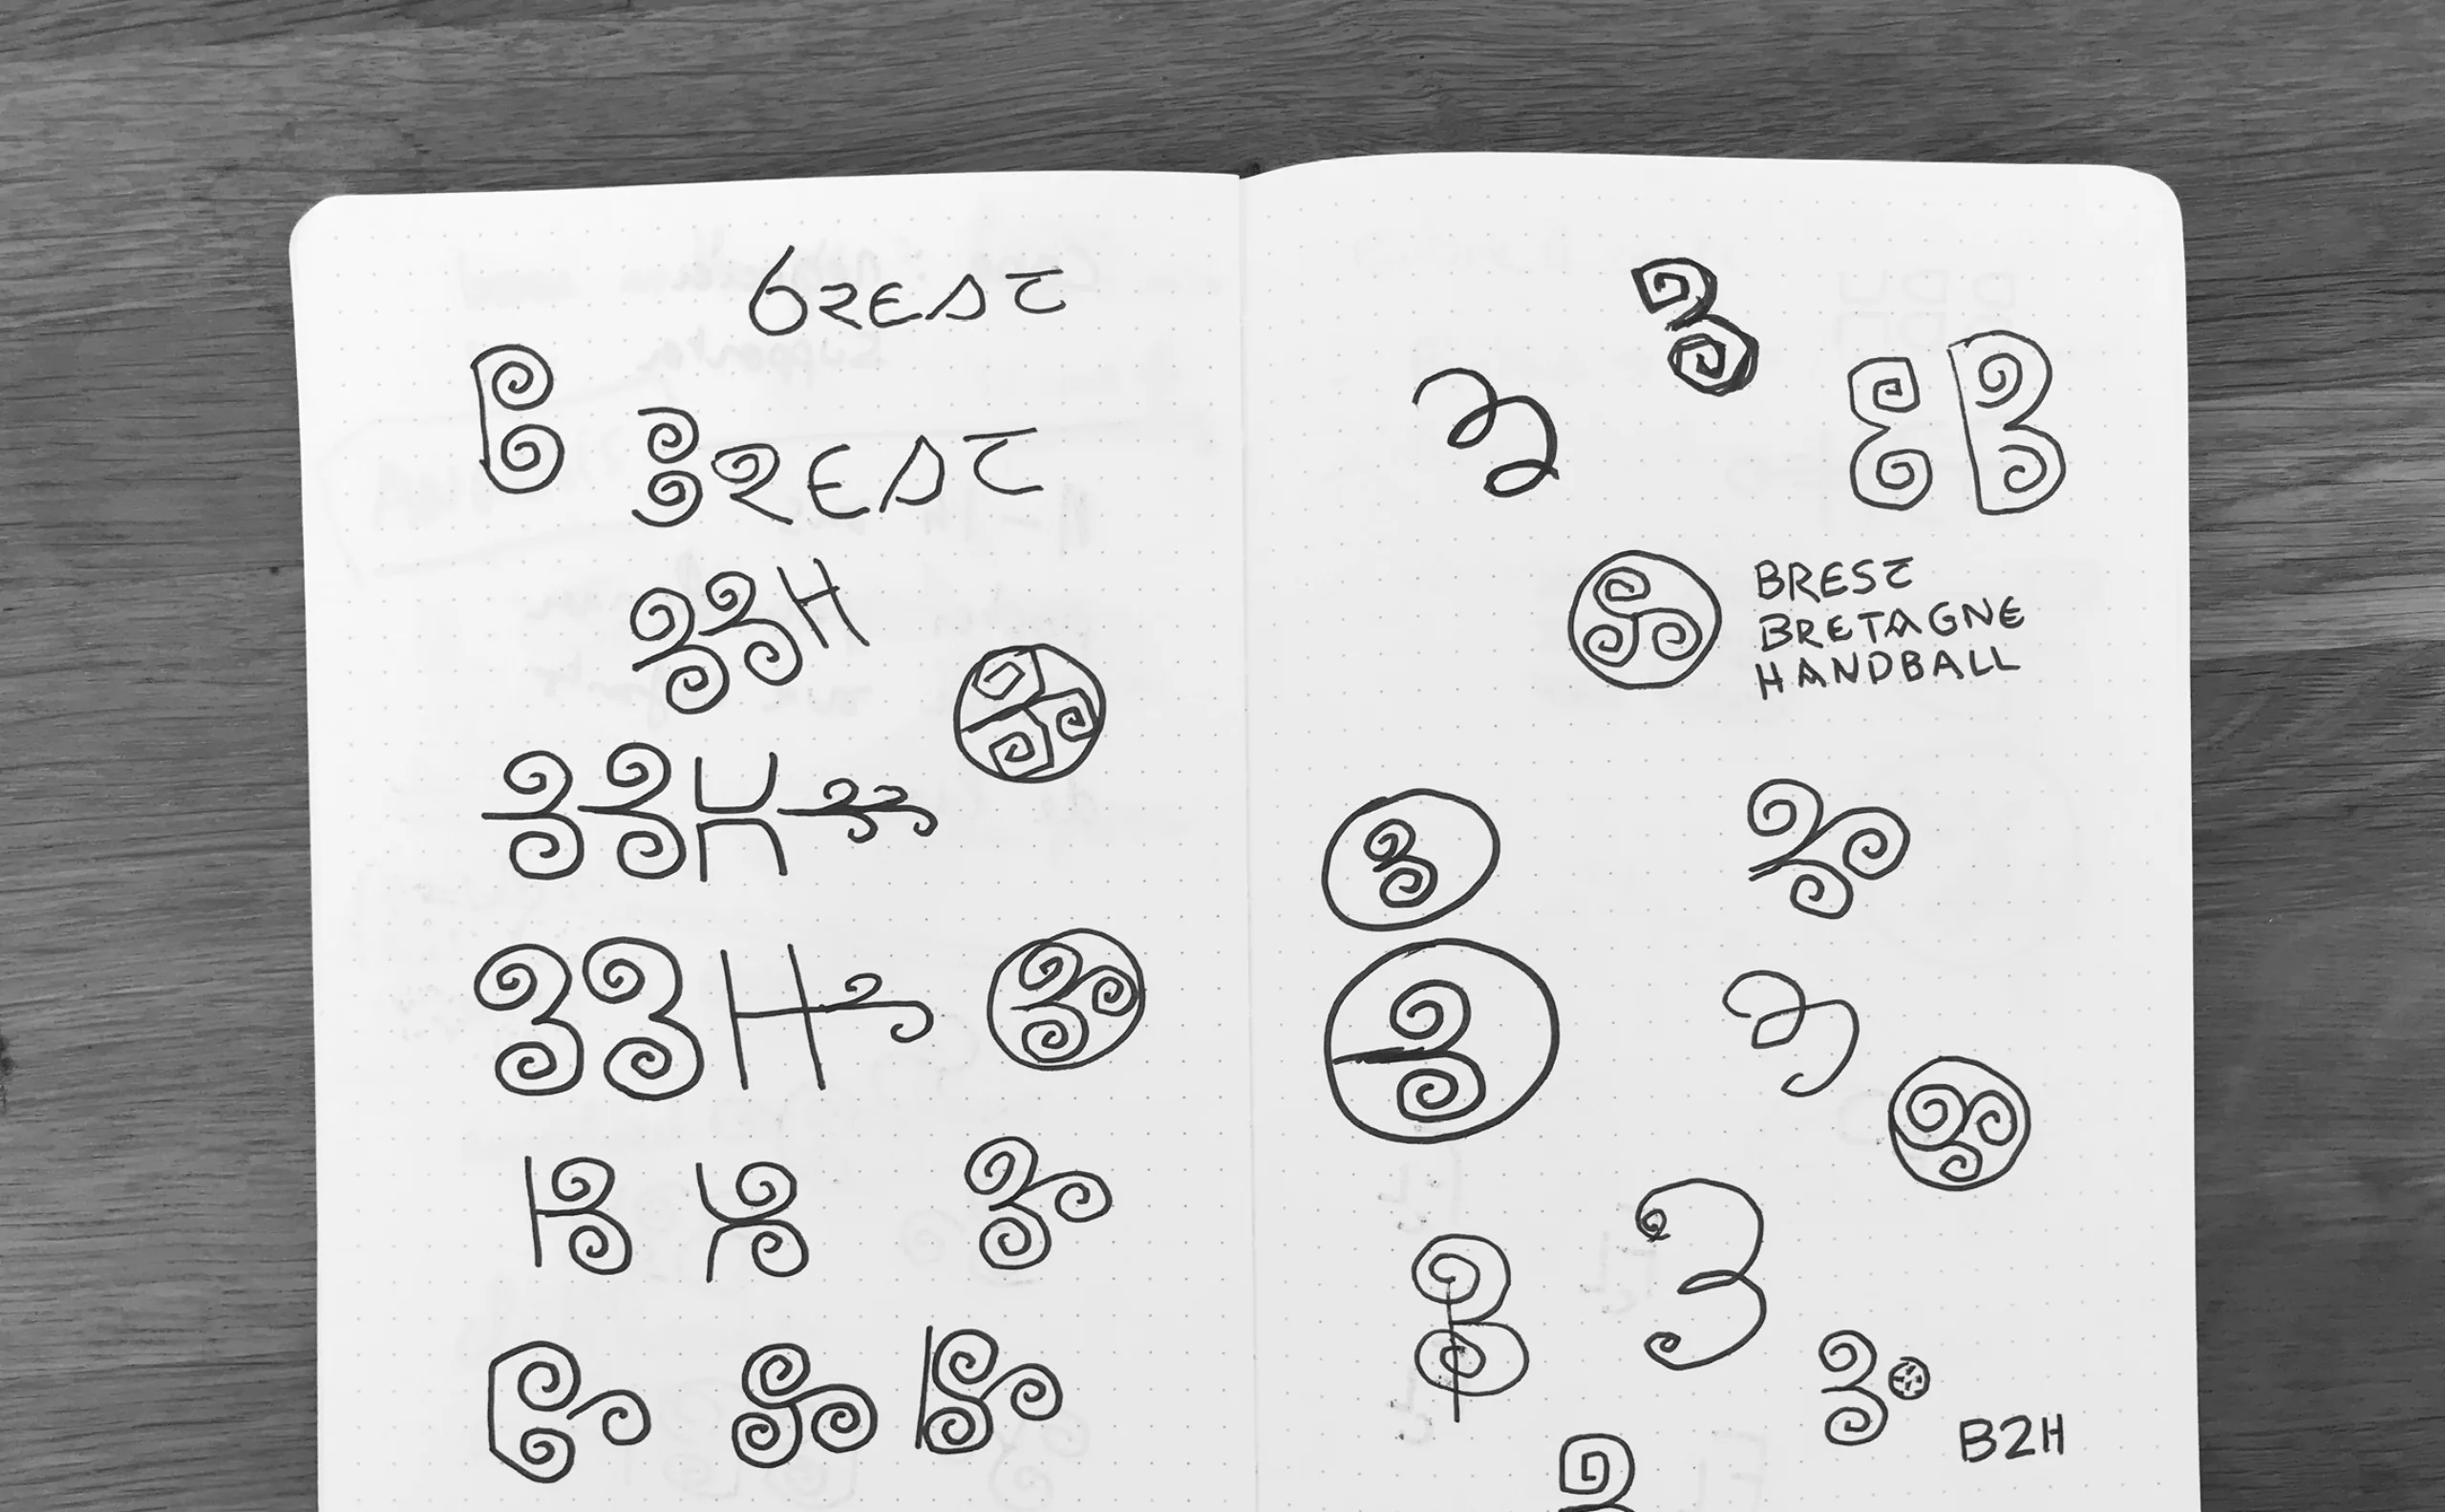 BREST
BREST
BBH
BBH
BBH
B
BREST
BRETAGNE
HANDBALL
B2H